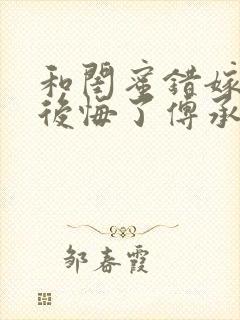 和閨蜜錯嫁
後悔了傅承
邹春霞